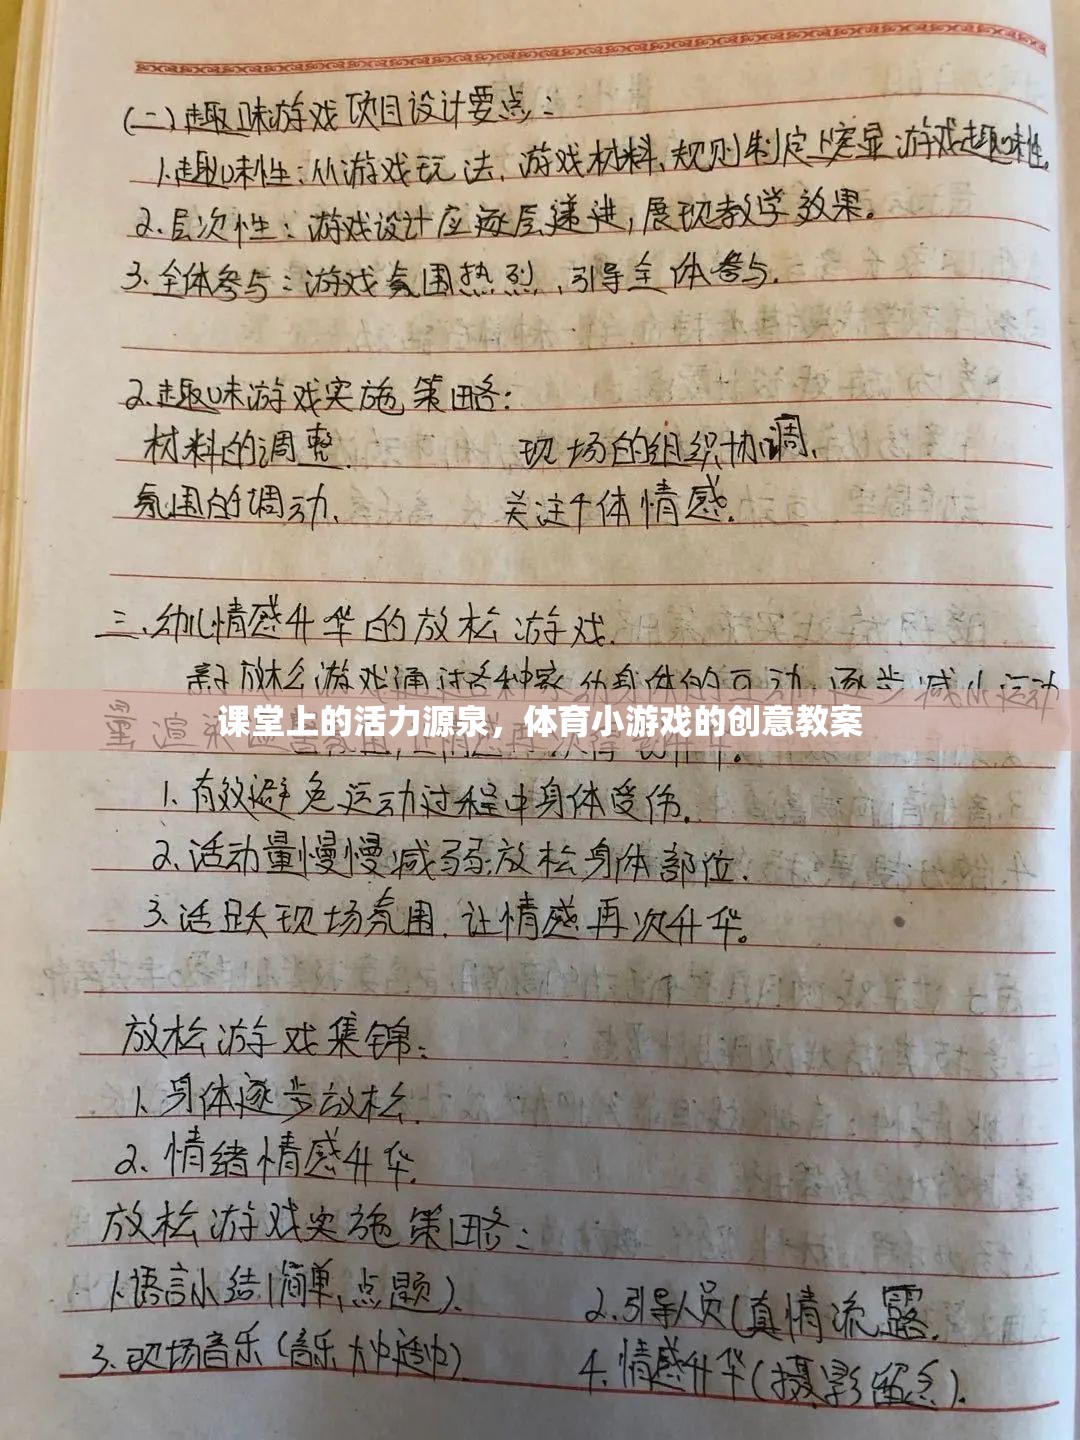 (一)趣味游戏项目设计要点:
1.趣味性:从游戏玩法、游戏材料、规则制定上突显游戏趣味性。
2.层次性:游戏设计应逐层递进,展现教学效果。
3.全体参与:游戏氛围热烈、引导全体参与.
2.趣味游戏实施策略:
材料的调整. 现场的组织协调.
氛围的调动、 关注个体情感.
三.幼儿情感升华的放松游戏.
亲子放松游戏通过各种家 的互动,逐步减小运动
课堂上的活力源泉,体育小游戏的创意教案
量渲染
1.有效避免运动过程中身体受伤.
2.活动量慢慢减弱.放松身体部位.
3.活跃现场氛围.让情感再次升华。
放松游戏集锦:
1、身体逐步放松.
2、情绪情感升华.
放松游戏实施策略:
1.语言小结(简单,点题). 2.引导人员(真情流露.
3.现场音乐(音乐 ) 4.情感升华(摄影留念).